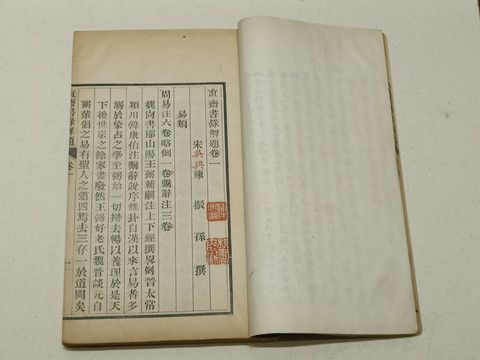 直齋書錄解題卷一
宋 吳興陳 振 孫 撰
易類
周易注六卷略例一卷繫辭注三卷
魏尚書郎山陽王弼輔嗣注上下經撰略例晉太常
潁川韓康伯注繫辭說序雜卦自漢以來言易者多
溺於象占之學至弼始一切掃去暢以義理於是天
下後世宗之餘家盡廢然王弼好老氏魏晉談元自
弼輩倡之易有聖人之道四焉去三存一於道闕矣
直齋書錄解題 卷一
一